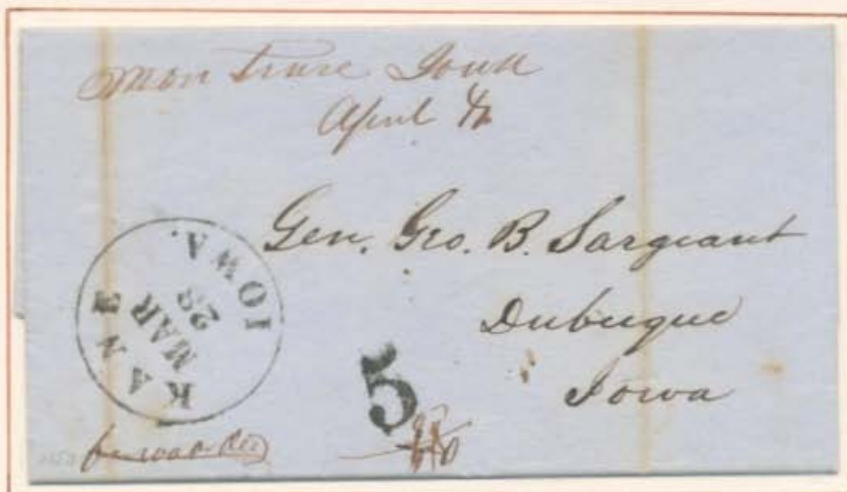 Mon trose Iowa
April 4
Gen. Geo. B. Sargeant
Dubuque
Iowa
KANE
IOWA.
MAR
28
5
forwarded